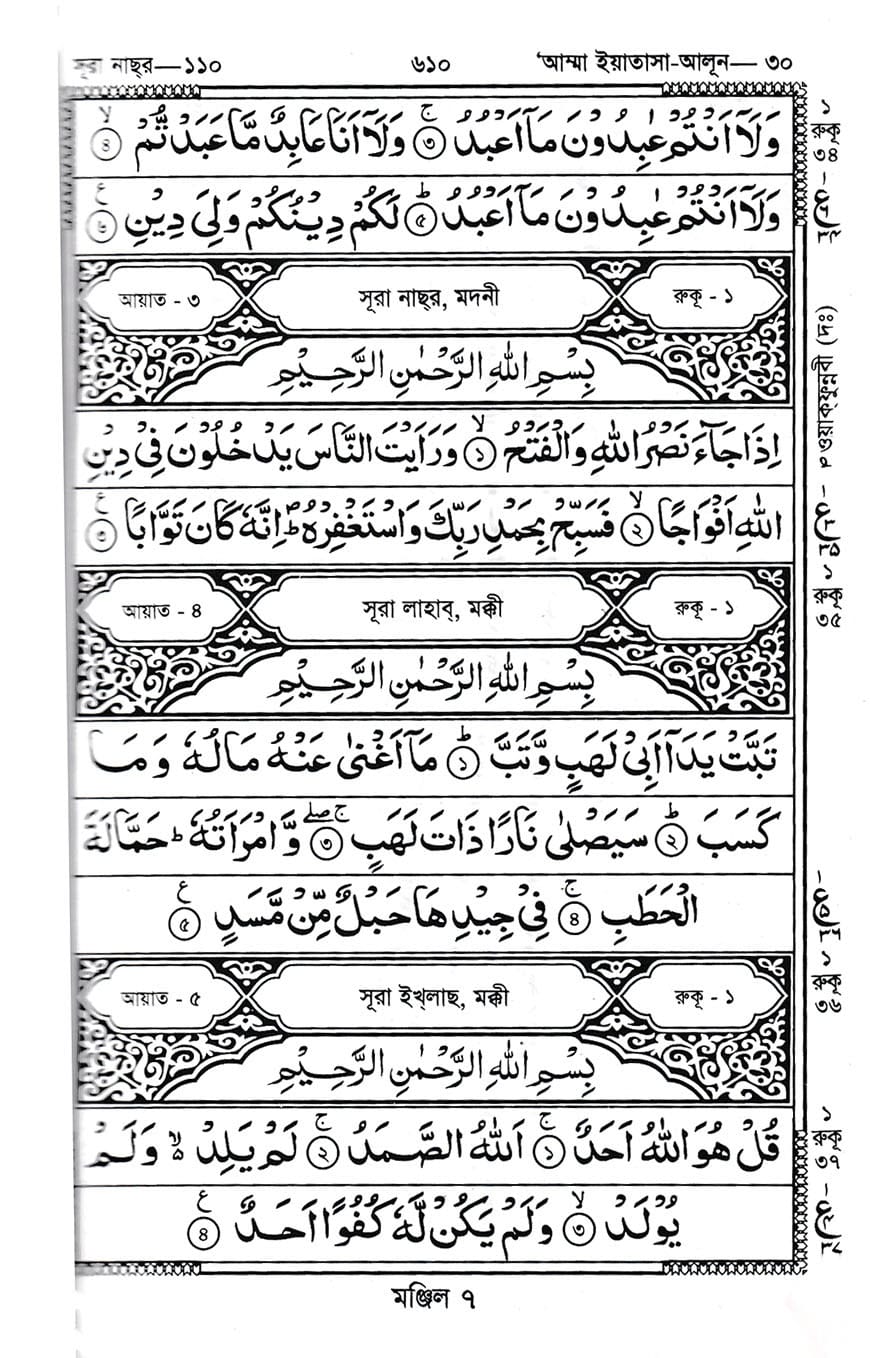 সূরা নাছ্র—১১০ ৬১০ ‘আম্মা ইয়াতাসা-আলূন— ৩০
وَلَآ اَنْتُمْ عٰبِدُوْنَ مَآ اَعْبُدُ ۚ ৩ وَلَآ اَنَا عَابِدٌ مَّا عَبَدْتُّمْ ۙ ৪
وَلَآ اَنْتُمْ عٰبِدُوْنَ مَآ اَعْبُدُ ؕ ৫ لَكُمْ دِيْنُكُمْ وَلِيَ دِيْنِ ৬ ع
আয়াত - ৩ সূরা নাছ্র, মদনী রুকূ - ১
بِسْمِ اللّٰهِ الرَّحْمٰنِ الرَّحِيْمِ
اِذَا جَآءَ نَصْرُ اللّٰهِ وَالْفَتْحُ ۙ ১ وَرَاَيْتَ النَّاسَ يَدْخُلُوْنَ فِيْ دِيْنِ
اللّٰهِ اَفْوَاجًا ۙ ২ فَسَبِّحْ بِحَمْدِ رَبِّكَ وَاسْتَغْفِرْهُ ؕ اِنَّهٗ كَانَ تَوَّابًا ৩ ع
আয়াত - ৪ সূরা লাহাব্, মক্কী রুকূ - ১
بِسْمِ اللّٰهِ الرَّحْمٰنِ الرَّحِيْمِ
تَبَّتْ يَدَآ اَبِيْ لَهَبٍ وَّتَبَّ ؕ ১ مَآ اَغْنٰى عَنْهُ مَالُهٗ وَمَا
كَسَبَ ؕ ২ سَيَصْلٰى نَارًا ذَاتَ لَهَبٍ ۚۖ ৩ وَّامْرَاَتُهٗ ؕ حَمَّالَةَ
الْحَطَبِ ۚ ৪ فِيْ جِيْدِهَا حَبْلٌ مِّنْ مَّسَدٍ ৫ ع
আয়াত - ৫ সূরা ইখ্লাছ, মক্কী রুকূ - ১
بِسْمِ اللّٰهِ الرَّحْمٰنِ الرَّحِيْمِ
قُلْ هُوَ اللّٰهُ اَحَدٌ ۚ ১ اَللّٰهُ الصَّمَدُ ۚ ২ لَمْ يَلِدْ ۙ وَلَمْ
يُوْلَدْ ۙ ৩ وَلَمْ يَكُنْ لَّهٗ كُفُوًا اَحَدٌ ৪ ع
১
রুকূ
৩৪
ওয়াক্ফুন্নবী (দঃ)
১
রুকূ
৩৫
১
রুকূ
৩৬
১
রুকূ
৩৭
মঞ্জিল ৭